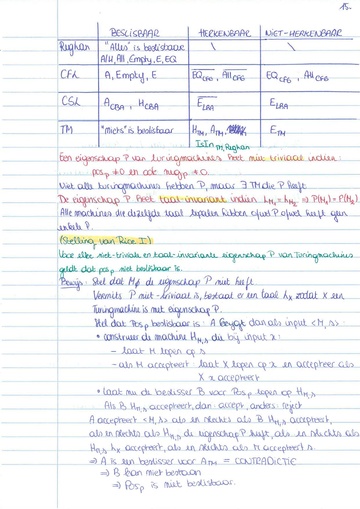 15.
BESLISBAAR HERKENBAAR NIET-HERKENBAAR
Reghan "Alles" is beslisbaar \ \
A, All, Empty, E, EQ
CFL A, Empty, E EQ̅_CFG, All̅_CFG EQ_CFG, All_CFG
CSL A_CBA, H_CBA E̅_LBA E_LBA
TM "niets" is beslisbaar H_TM, A_TM, E_TM
IsIn_TM,Reghan
Een eigenschap P van turingmachines heet niet triviaal indien:
pos_P ≠ ∅ en ook neg_P ≠ ∅.
Niet alle turingmachines hebben P, maar ∃ TM die P heeft
De eigenschap P heet taal-invariant indien L_M1 = L_M2 ⇒ P(M1) = P(M2).
Alle machines die dezelfde taal bepalen hebben ofwel P ofwel heeft geen
enkele P.
(Stelling van Rice I)
Voor elke niet-triviale en taal-invariante eigenschap P van Turingmachines
geldt dat pos_P niet beslisbaar is.
Bewijs: Stel dat M∅ de eigenschap P niet heeft.
Vermits P niet-triviaal is, bestaat er een taal L_X zodat X een
Turingmachine is met eigenschap P.
Stel dat Pos_P beslisbaar is: A krijgt dan als input <M, s>
• construeer de machine H_M,s die bij input x:
- laat M lopen op s
- als M accepteert: laat X lopen op x en accepteer als
X x accepteert
• laat nu de beslisser B voor Pos_P lopen op H_M,s
Als B H_M,s accepteert, dan: accept, anders: reject
A accepteert <M,s> als en slechts als B H_M,s accepteert,
als en slechts als H_M,s de eigenschap P heeft, als en slechts als
H_M,s L_X accepteert, als en slechts als M accepteert s.
⇒ A is een beslisser voor A_TM = CONTRADICTIE
⇒ B kan niet bestaan
⇒ Pos_P is niet beslisbaar.